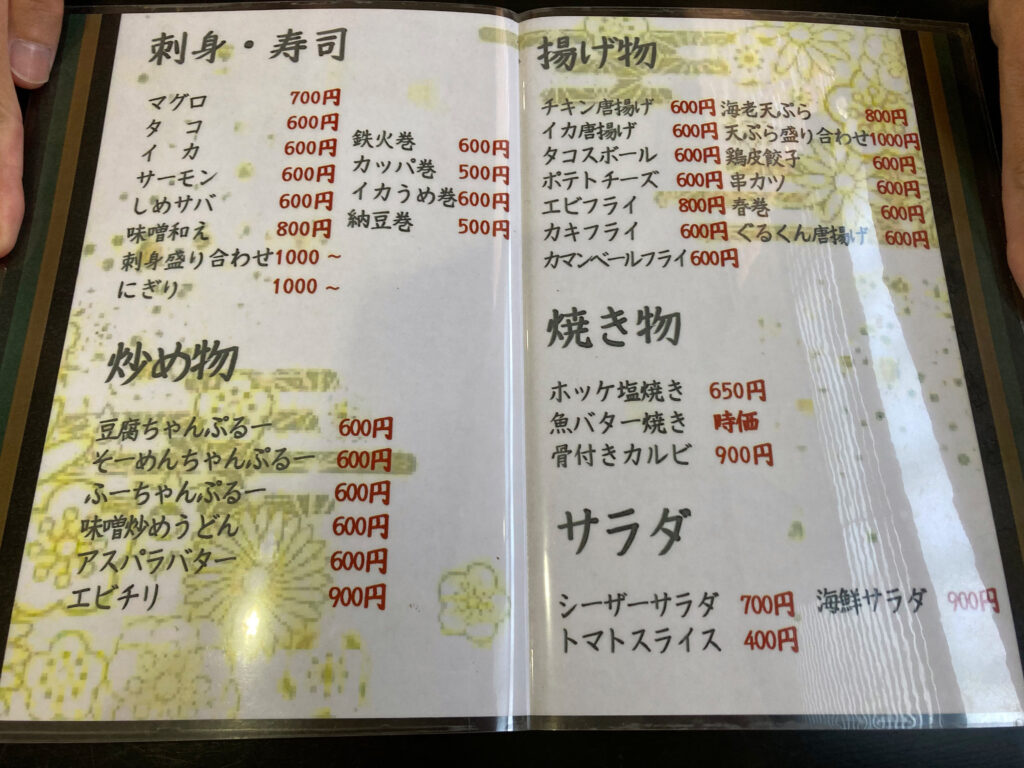 刺身・寿司
マグロ 700円
タコ 600円
イカ 600円
サーモン 600円
しめサバ 600円
味噌和え 800円
刺身盛り合わせ1000～
にぎり 1000～
鉄火巻 600円
カッパ巻 500円
イカうめ巻600円
納豆巻 500円
炒め物
豆腐ちゃんぷるー 600円
そーめんちゃんぷるー 600円
ふーちゃんぷるー 600円
味噌炒めうどん 600円
アスパラバター 600円
エビチリ 900円
揚げ物
チキン唐揚げ 600円
イカ唐揚げ 600円
タコスボール 600円
ポテトチーズ 600円
エビフライ 800円
カキフライ 600円
カマンベールフライ600円
海老天ぷら 800円
天ぷら盛り合わせ1000円
鶏皮餃子 600円
串カツ 600円
春巻 600円
ぐるくん唐揚げ 600円
焼き物
ホッケ塩焼き 650円
魚バター焼き 時価
骨付きカルビ 900円
サラダ
シーザーサラダ 700円 海鮮サラダ 900円
トマトスライス 400円